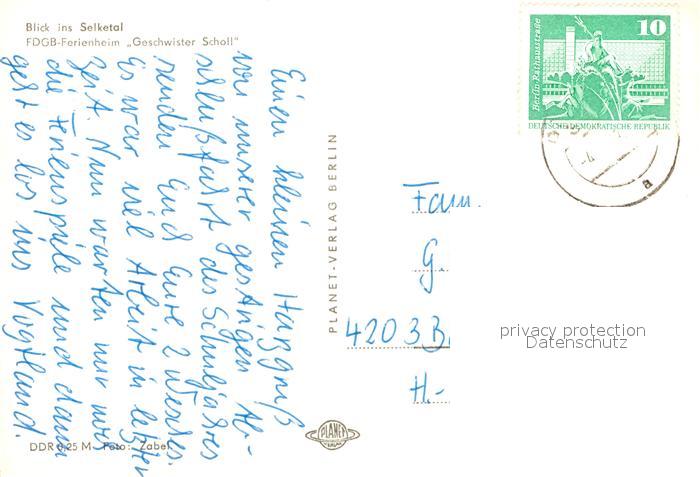 Blick ins Selketal
FDGB-Ferienheim „Geschwister Scholl"
Einen kleinen Harzgruß
von unserer gestrigen Ab-
schlußfahrt des Schuljahres
senden Euch Eure 2
Es war viel Arbeit in letzter
Zeit. Nun warten nur noch
die Ferienspiele und dann
geht es los ins Vogtland.
DDR 0,25 M Foto: Zabel
PLANET-VERLAG BERLIN
PLANET
VERLAG
10
Berlin Rathausstraße
DEUTSCHE DEMOKRATISCHE REPUBLIK
a
Fam.
G.
4203 B.
H.-
privacy protection
Datenschutz